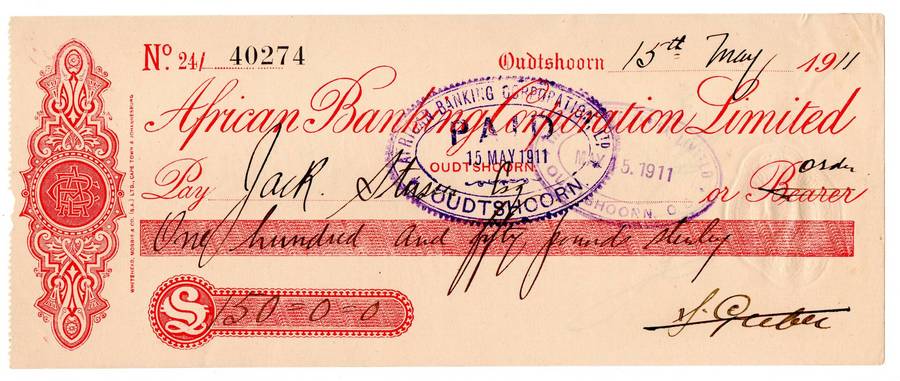 No. 24/ 40274
Oudtshoorn 15th May 1911
African Banking Corporation Limited
AFRICAN BANKING CORPORATION LTD
PAID
15 MAY 1911
OUDTSHOORN
OUDTSHOORN.
5.1911
Pay Jack. Esq or Bearer order
One hundred and fifty pounds sterling
£ 150=0-0
WHITEHEAD, MORRIS & CO. (S.A.) LTD., CAPE TOWN & JOHANNESBURG.